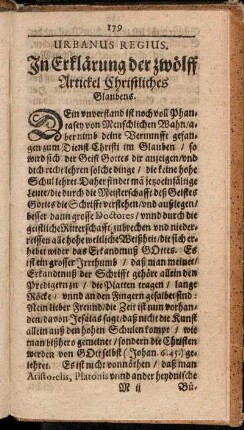 179
URBANUS REGIUS.
In Erklärung der zwölff
Artickel Christliches
Glaubens.
DEin unverstand ist noch voll Phan-
tasey von Menschlichen Wahn/a-
ber nimb deine Vernunfft gefan-
gen zum Dienst Christi im Glauben / so
wird sich der Geist Gottes dir anzeigen/und
dich recht lehren solche dinge / die keine hohe
Schul lehret. Daher findet mā jetzo einfältige
Leute/die durch die Meisterschafft deß Geistes
Gottes die Schrifft verstehen/vnd außlegen/
besser dann grosse Doctores / vnnd durch die
geistliche Ritterschafft zubrechen vnd nieder-
reissen alle hohe weltliche Weißheit/die sich er-
hebet wider das Erkandnuß GOttes. Es
ist ein grosser Irrthumb / daß man meinet/
Erkandtnuß der Schrifft gehöre allein den
Predigern zu / die Platten tragen / lange
Röcke / vnnd an den Fingern gesalbet sind.
Nein lieber Freund/die Zeit ist nun vorhan-
den/davon Jesaias sagt/daß nicht die Kunst
allein auß den hohen Schulen kompt / wie
man bißhero gemeinet / sondern die Christen
werden von GOtt selbst (Johan. 6.45.) ge-
lehret. Es ist nicht vonnöthen / daß man
Aristotelis, Platonis und ander heydnische
M ij Bü-